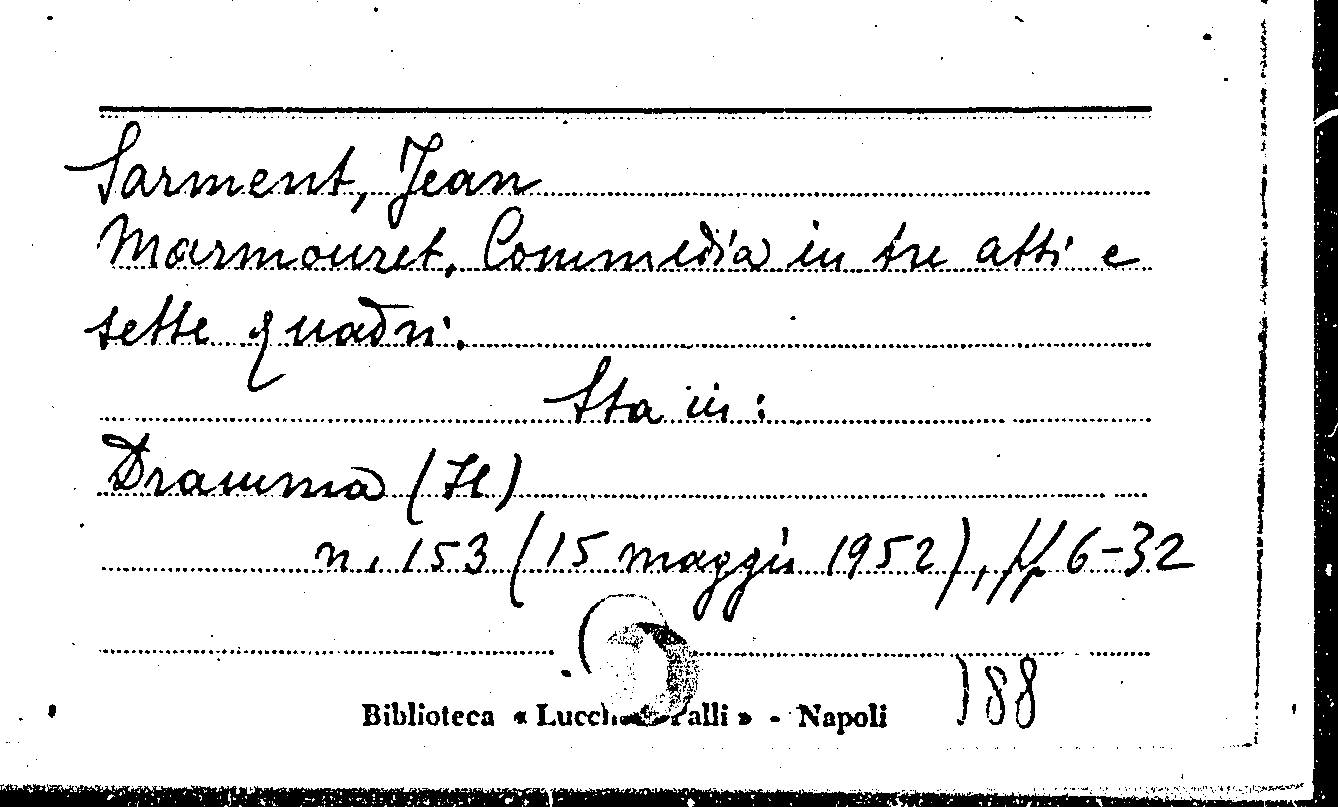 Sarment, Jean
Marmouret. Commedia in tre atti e
sette quadri.
Sta in:
Dramma (Il)
n. 153 (15 maggio 1952), pp 6-32
Biblioteca « Lucchesi Palli » - Napoli
188